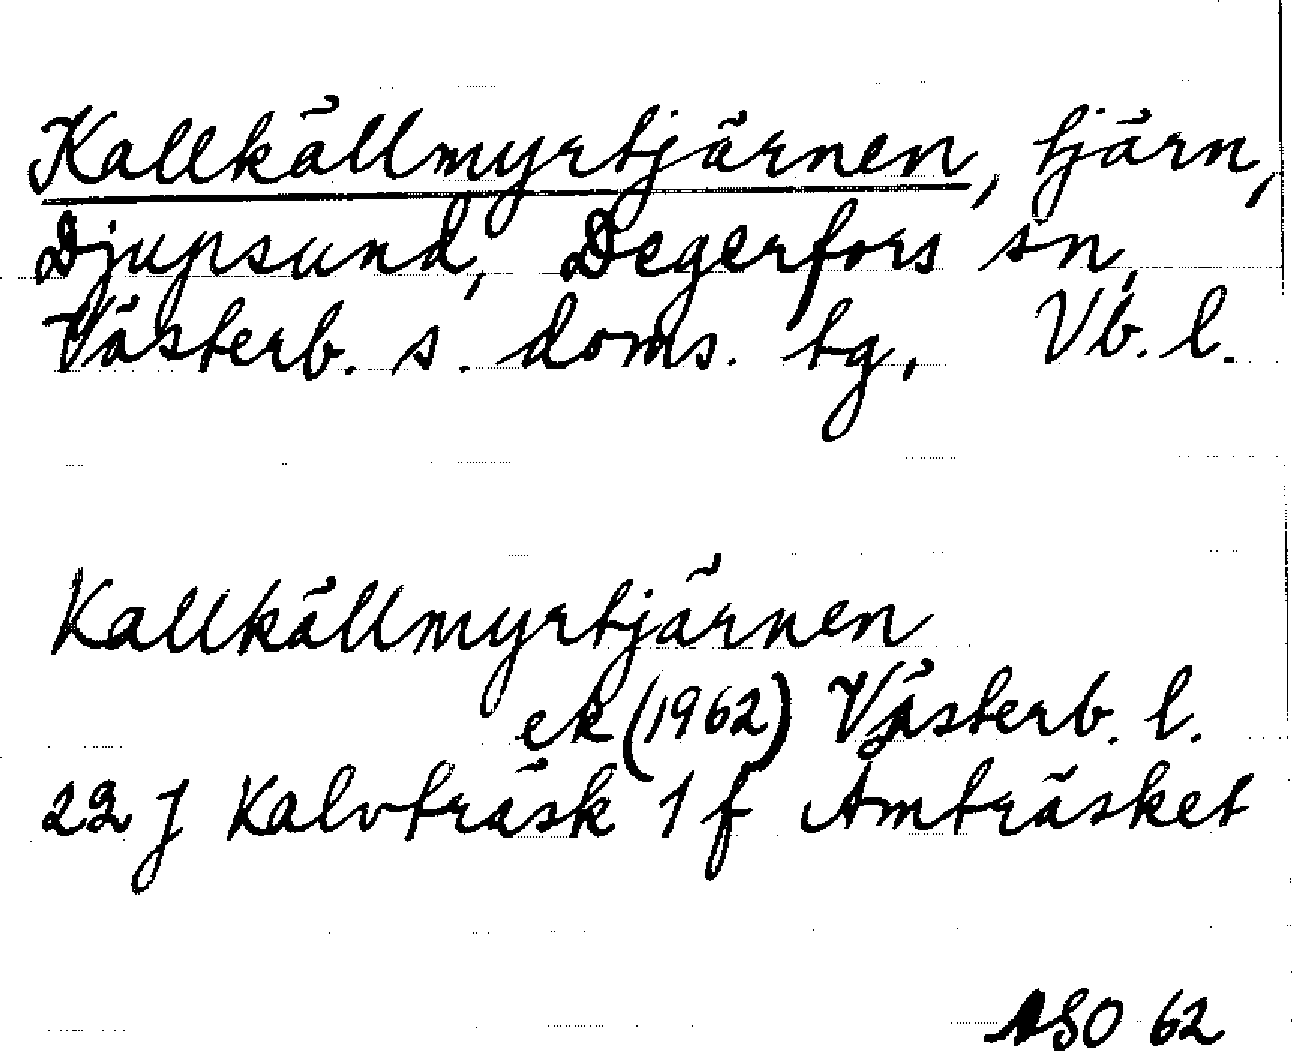 Kallkällmyrtjärnen, tjärn,
Djupsund, Degerfors sn,
Västerb. s. doms. tg, Vb. l.
Kallkällmyrtjärnen
ek (1962) Västerb. l.
22 J Kalvträsk 1 f Amträsket
ASO 62